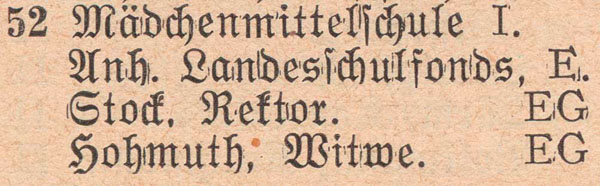 52 Mädchenmittelschule I.
Anh. Landesschulfonds, E.
Stock, Rektor. EG
Hohmuth, Witwe. EG